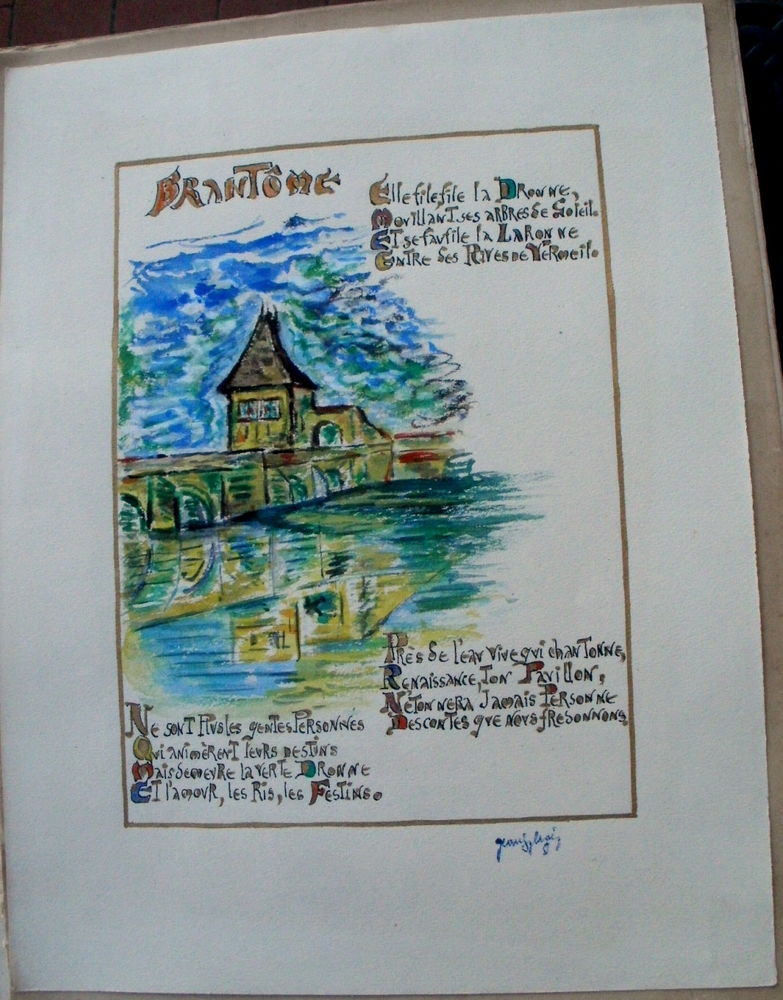 BRANTÔME
Elle file, file la Dronne,
Mouillant ses arbres de Soleil.
Et se faufile la Laronne
Entre ses Rives de Vermeil.
Près de l'eau vive qui chantonne,
Renaissance, Ton Pavillon,
N'étonnera Jamais Personne
Des contes que nous fredonnons.
Ne sont Plus les gentes Personnes
Qui animèrent leurs destins
Mais demeure la verte Dronne
Et l'amour, les Ris, les Festins.